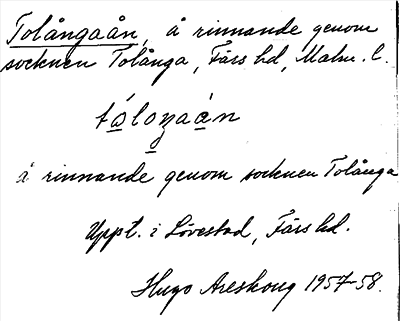 Tolångaån, å rinnande genom
socknen Tolånga, Färs hd, Malm. l.
tóloŋaán
å rinnande genom socknen Tolånga
Uppt. i Lövestad, Färs hd.
Hugo Areskoug 1957-58.